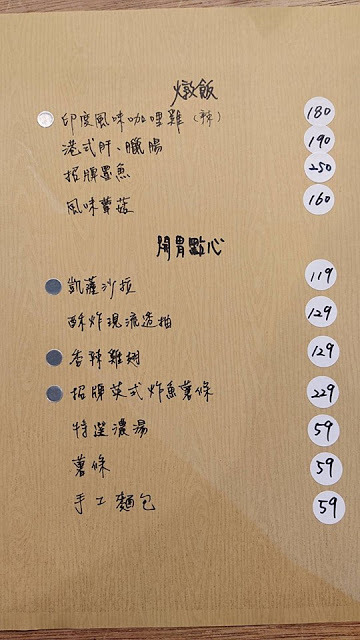 燉飯
印度風味咖哩雞(辣) 180
港式肝、臘腸 190
招牌墨魚 250
風味蕈菇 160
開胃點心
凱薩沙拉 119
酥炸現流透抽 129
香辣雞翅 129
招牌英式炸魚薯條 229
特選濃湯 59
薯條 59
手工麵包 59